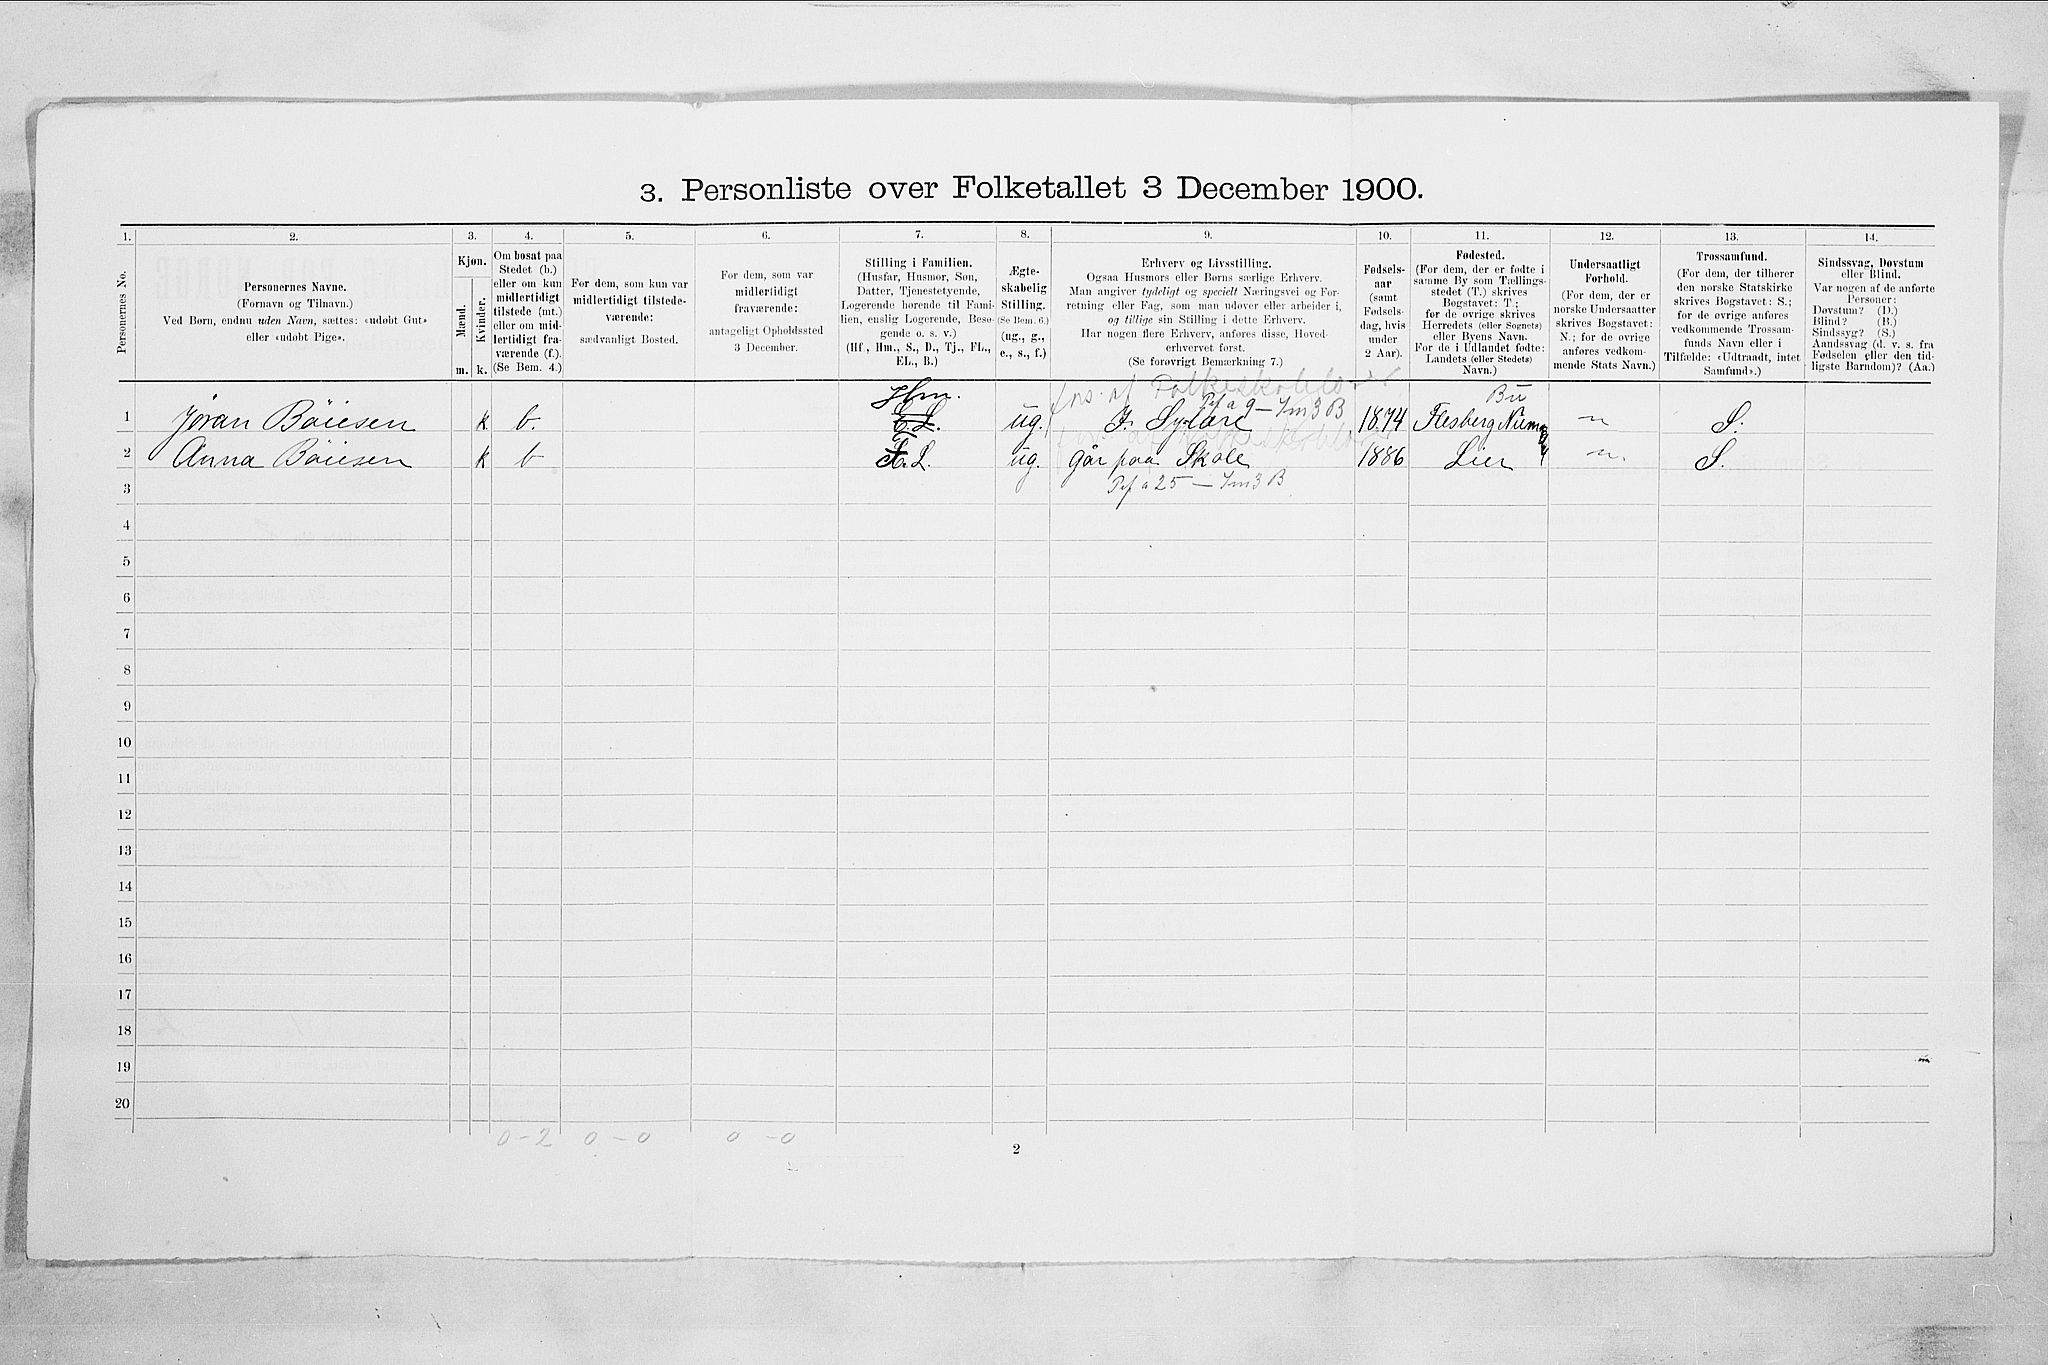 3. Personliste over Folketallet 3 December 1900.
1. 2. 3. 4. 5. 6. 7. 8. 9. 10. 11. 12. 13. 14.
Personernes No.
Personernes Navne.
(Fornavn og Tilnavn.)
Ved Børn, endnu uden Navn, sættes: «udøbt Gut»
eller «udøbt Pige».
Kjøn.
Mænd.
Kvinder.
m. k.
Om bosat paa
Stedet (b.)
eller om kun
midlertidigt
tilstede (mt.)
eller om mid-
lertidigt fra-
værende (f.).
(Se Bem. 4.)
For dem, som kun var
midlertidigt tilstede-
værende:
sædvanligt Bosted.
For dem, som var
midlertidigt
fraværende:
antageligt Opholdssted
3 December.
Stilling i Familien.
(Husfar, Husmor, Søn,
Datter, Tjenestetyende,
Logerende hørende til Fami-
lien, enslig Logerende, Besø-
gende o. s. v.)
(Hf., Hm., S., D., Tj., FL.,
EL., B.)
Ægte-
skabelig
Stilling.
(Se Bem. 6.)
(ug., g.,
e., s., f.)
Erhverv og Livsstilling.
Ogsaa Husmors eller Børns særlige Erhverv.
Man angiver tydeligt og specielt Næringsvei og For-
retning eller Fag, som man udøver eller arbeider i,
og tillige sin Stilling i dette Erhverv.
Har nogen flere Erhverv, anføres disse, Hoved-
erhvervet først.
(Se forøvrigt Bemærkning 7.)
Fødsels-
aar
(samt
Fødsels-
dag, hvis
under
2 Aar).
Fødested.
(For dem, der er fødte i
samme By som Tællings-
stedet (T.) skrives
Bogstavet: T.;
for de øvrige skrives
Herredets (eller Sognets)
eller Byens Navn.
For de i Udlandet fødte:
Landets (eller Stedets)
Navn.)
Undersaatligt
Forhold.
(For dem, der er
norske Undersaatter
skrives Bogstavet:
N.; for de øvrige
anføres vedkom-
mende Stats Navn.)
Trossamfund.
(For dem, der tilhører
den norske Statskirke
skrives Bogstavet: S.;
for de øvrige anføres
vedkommende Trossam-
funds Navn eller i
Tilfælde: «Udtraadt, intet
Samfund».)
Sindssvag, Døvstum
eller Blind.
Var nogen af de anførte
Personer:
Døvstum? (D.)
Blind? (B.)
Sindssyg? (S.)
Aandssvag (d. v. s. fra
Fødselen eller den tid-
ligste Barndom)? (Aa.)
Hm. Bu
1 Jøran Bøiesen k b. E.L. ug. I. Sylære 1874 Flesberg n S.
2 Anna Bøiesen k b F.L. ug. går paa Skole 1886 Lier n. S.
3
4
5
6
7
8
9
10
11
12
13
14
15
16
17
18
19
20
0 - 2 0 - 0 0 - 0
2